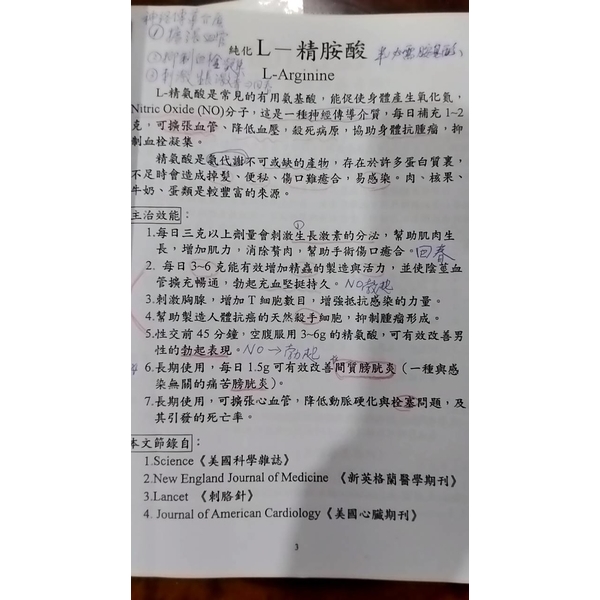 神經傳導介質
①擴張血管
②抑制血栓凝集
③刺激生長激素
純化 L－精胺酸
L-Arginine
L-精氨酸是常見的有用氨基酸，能促使身體產生氧化氮，
Nitric Oxide (NO)分子，這是一種神經傳導介質，每日補充 1~2
克，可擴張血管、降低血壓，殺死病原，協助身體抗腫瘤，抑
制血栓凝集。
精氨酸是氨代謝不可或缺的產物，存在於許多蛋白質裏，
不足時會造成掉髮、便秘、傷口難癒合，易感染。肉、核果、
牛奶、蛋類是較豐富的來源。
主治效能：
①
1.每日三克以上劑量會刺激生長激素的分泌，幫助肌肉生
長，增加肌力，消除贅肉，幫助手術傷口癒合。回春
2. 每日 3~6 克能有效增加精蟲的製造與活力，並使陰莖血
管擴充暢通，勃起充血堅挺持久。NO 勃起
3.刺激胸腺，增加 T 細胞數目，增強抵抗感染的力量。
4.幫助製造人體抗癌的天然殺手細胞，抑制腫瘤形成。
5.性交前 45 分鐘，空腹服用 3~6g 的精氨酸，可有效改善男
性的勃起表現。NO→勃起
6.長期使用，每日 1.5g 可有效改善間質膀胱炎（一種與感
染無關的痛苦膀胱炎）。
7.長期使用，可擴張心血管，降低動脈硬化與栓塞問題，及
其引發的死亡率。
本文節錄自：
1.Science《美國科學雜誌》
2.New England Journal of Medicine 《新英格蘭醫學期刊》
3.Lancet 《刺胳針》
4. Journal of American Cardiology《美國心臟期刊》
3